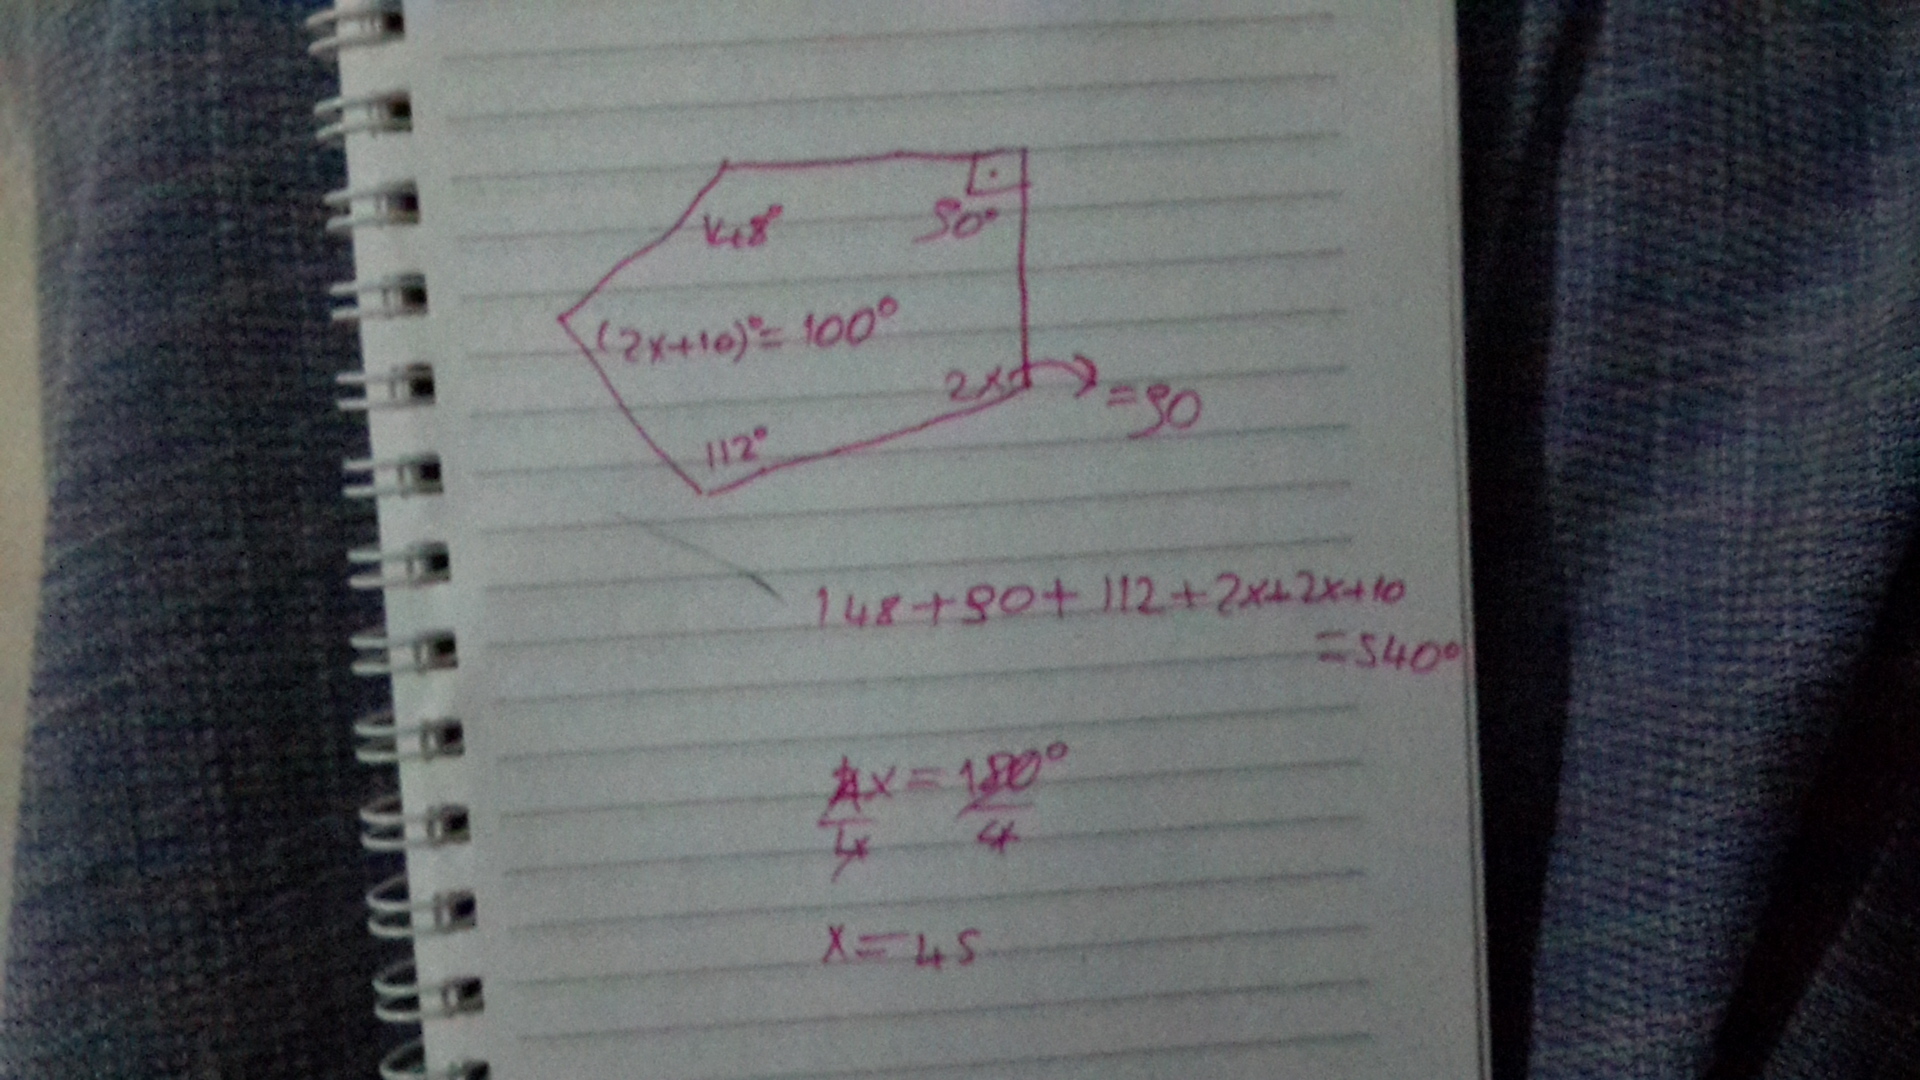 148°
90°
(2x+10)°= 100°
2x°
=90
112°
148+90+112+2x+2x+10
=540°
4x=180°
4 4
x=45